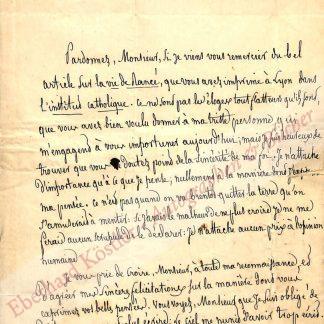 Pardonnez, Monsieur, si je viens vous remercier du bel
article sur la vie de Rancé, que vous avez imprimé à Lyon dans
l'institut catholique. Ce ne sont pas les éloges tout flatteurs qu'ils sont,
que vous avez bien voulu donner à ma triste personne qui
m'engagent à vous importuner aujourd'hui; mais je suis heureux de
trouver que vous ne doutez point de la sincérité de ma foi. Je n'attache
d'importance qu'à ce que je pense; nullement à la manière dont
ma pensée. Ce n'est pas quand on va bientôt quitter la terre qu'on
s'amuserait à mentir. Si j'avais le malheur de ne plus croire, je ne me
ferais aucun scrupule de le déclarer. Je n'attache aucun prix à l'opinion
humaine.
Je vous prie de croire, Monsieur, à toute ma reconnaissance et
d'agréer mes sincères félicitations sur la manière dont vous
exprimez vos belles pensées. Vous voyez, Monsieur que je suis obligé de
écrire; le ciel me punit d'avoir trop écrit.
Eberhard Köstler